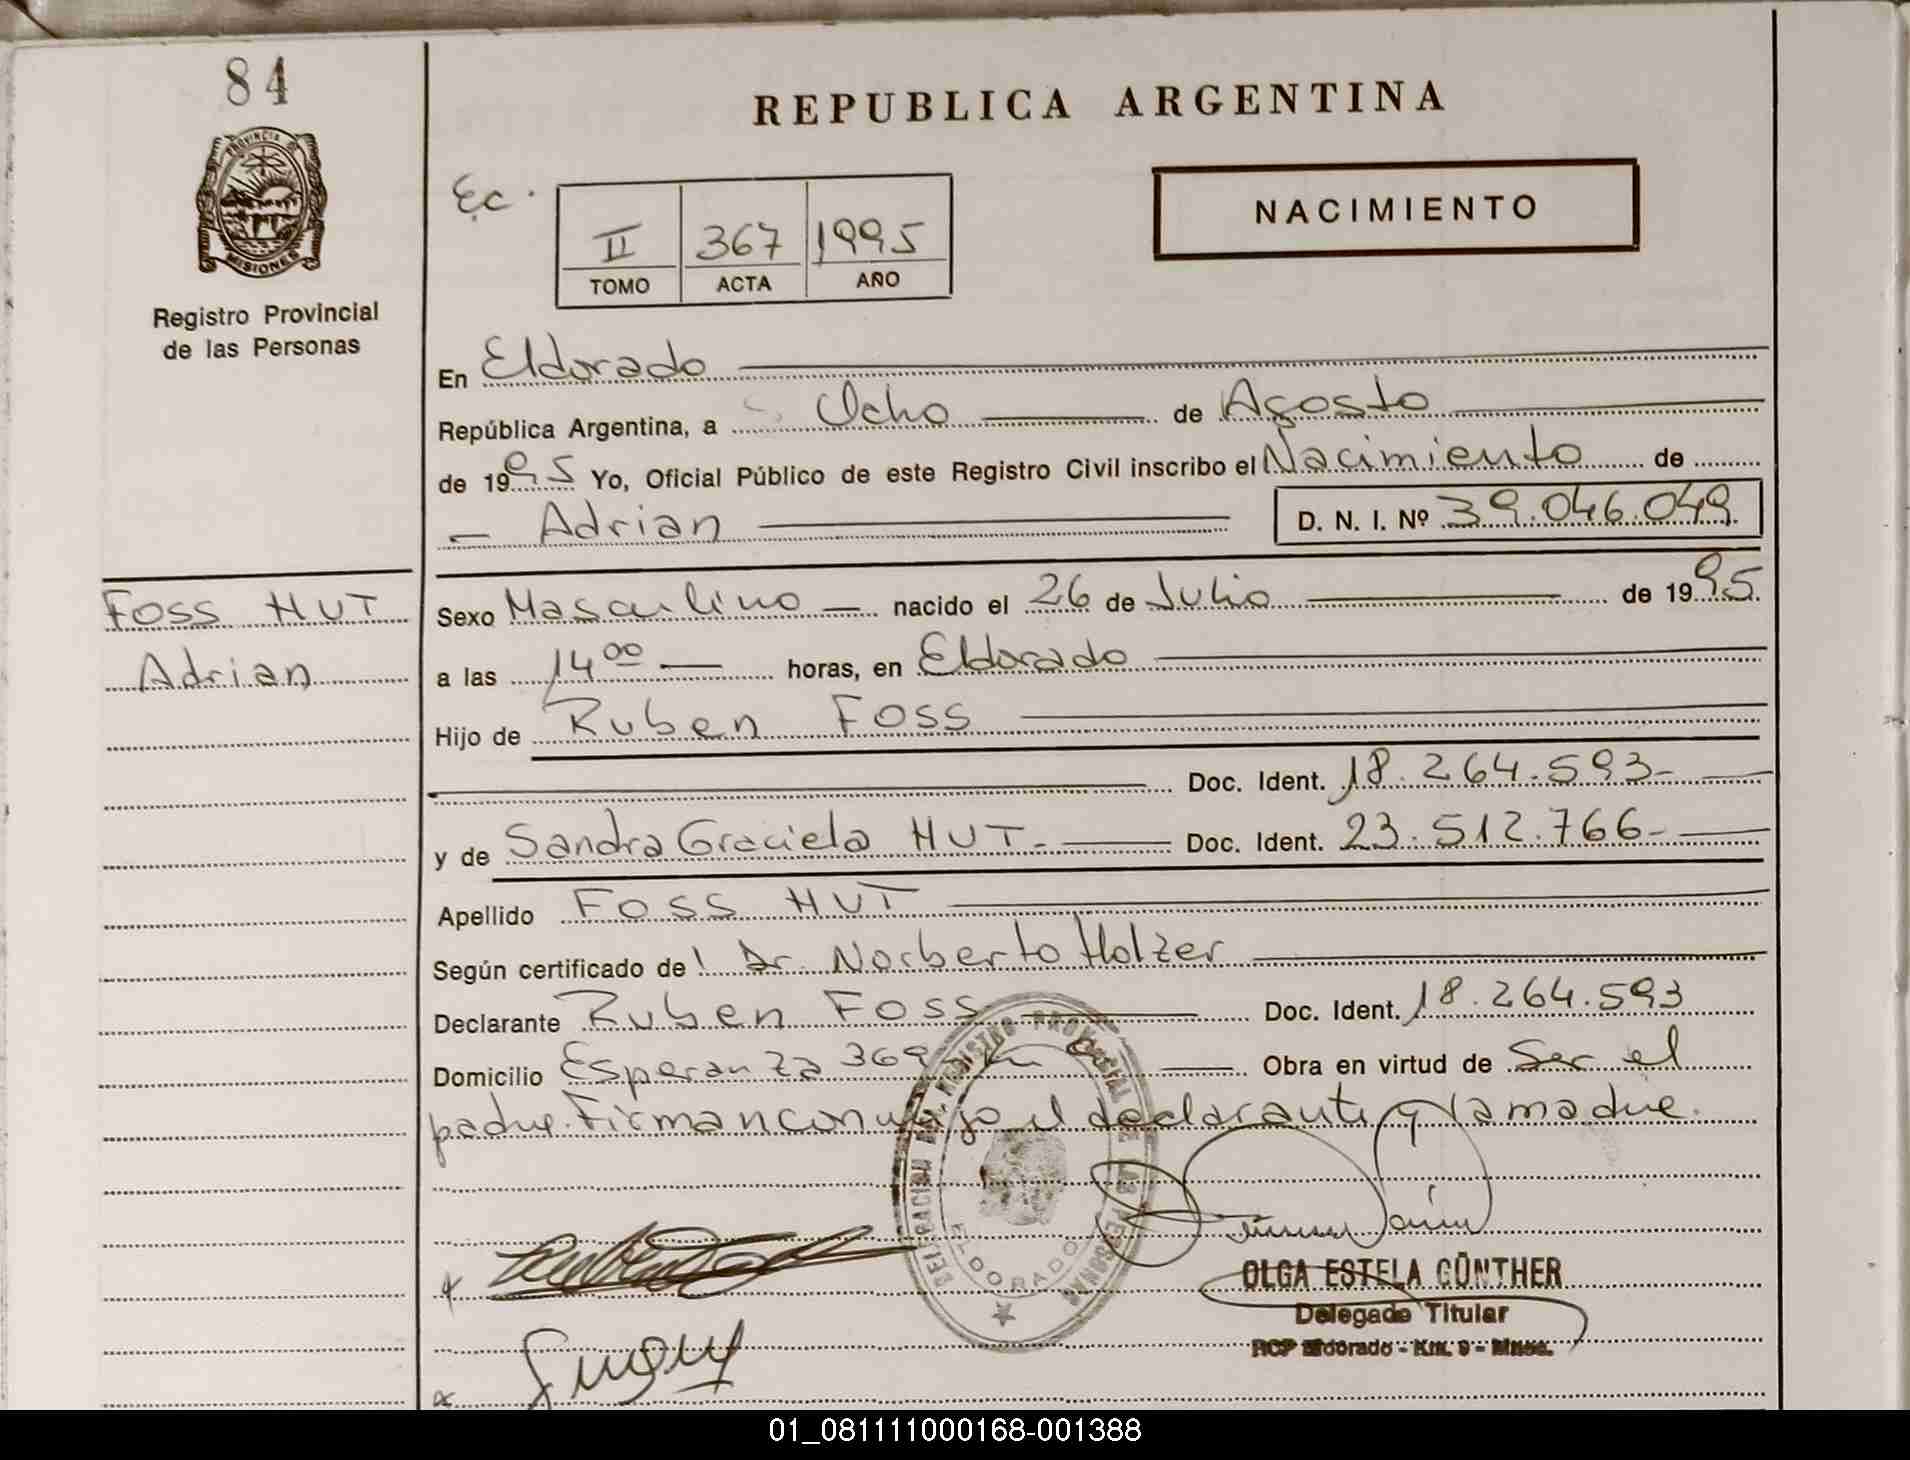 84
PROVINCIA DE
MISIONES
Registro Provincial
de las Personas
REPUBLICA ARGENTINA
Ec.
II 367 1995
TOMO ACTA AÑO
NACIMIENTO
En Eldorado
República Argentina, a Ocho de Agosto
de 1995 Yo, Oficial Público de este Registro Civil inscribo el Nacimiento de
Adrian D. N. I. Nº 39.046.049
FOSS HUT
Adrian
Sexo Masculino nacido el 26 de Julio de 1995
a las 14 00 horas, en Eldorado
Hijo de Ruben FOSS
Doc. Ident. 18.264.593-
y de Sandra Graciela HUT- Doc. Ident. 23.512.766-
Apellido FOSS HUT
Según certificado de Dr. Norberto Holzer
Declarante Ruben FOSS Doc. Ident. 18.264.593
Domicilio Esperanza 369 Km 9 Obra en virtud de Ser el
padre. Firman conmigo el declarante y la madre.
DELEGACION DEL REGISTRO PROVINCIAL DE LAS PERSONAS
ELDORADO
OLGA ESTELA GÜNTHER
Delegado Titular
RCP Eldorado - Km. 9 - Mnes.
01_081111000168-001388